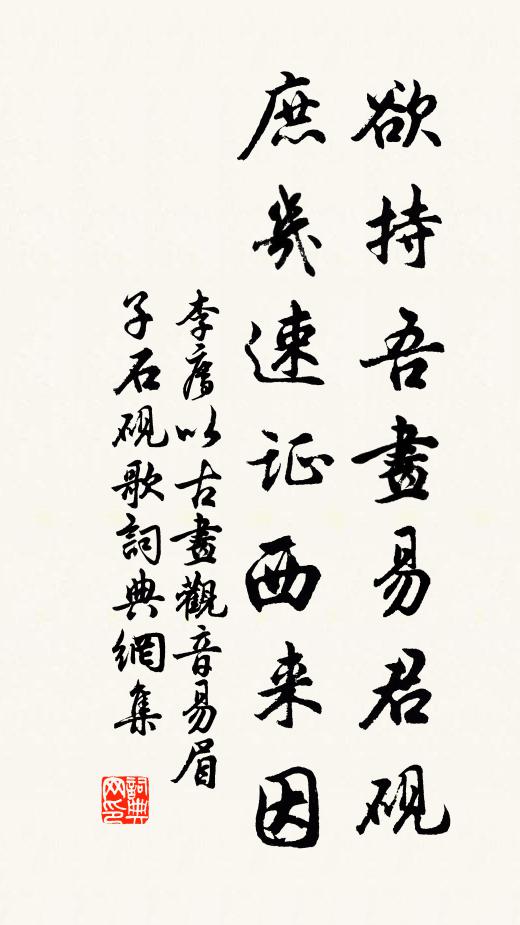 欲持吾畫易君硯
庶幾速证西来因
李廌以古畫觀音易眉
子石硯歌詞典網集
詞典
网印